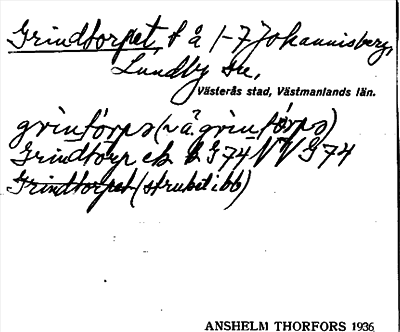 Grindtorpet, t å 1-7 Johannisberg,
Lundby sn,
Västerås stad, Västmanlands län.
grintórps (~ ä grin tórps)
Grindtorp ek G 74 V G 74
Grindtorpet (struket i bb)
ANSHELM THORFORS 1936